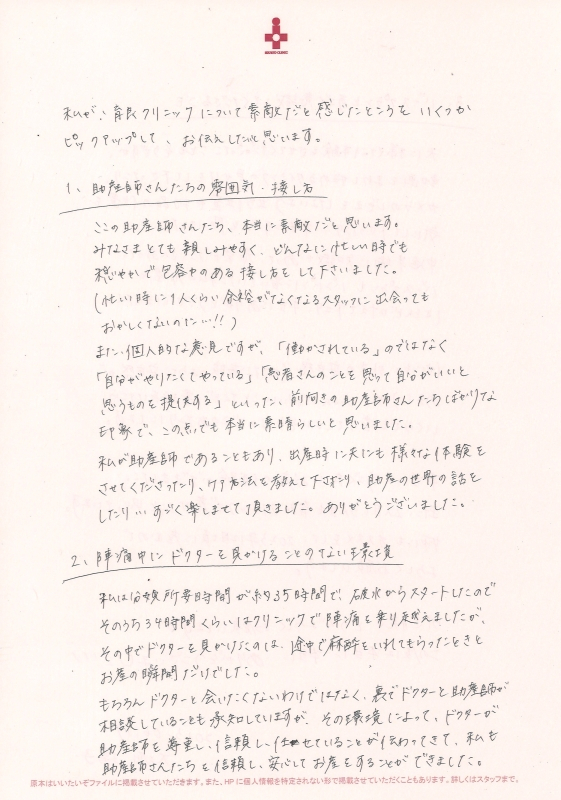 IKURYO CLINIC
私が、育良クリニックについて素敵だと感じたところを いくつか
ピックアップして、お伝えしたいと思います。
1、助産師さんたちの雰囲気・接し方
ここの助産師さんたち、本当に素敵だと思います。
みなさまとても親しみやすく、どんなに忙しい時でも
穏やかで包容力のある接し方をして下さいました。
(忙しい時に1人くらい余裕がなくなるスタッフに出会っても
おかしくないのに…!!)
また、個人的な意見ですが、「働かされている」のではなく
「自分がやりたくてやっている」「患者さんのことを思って自分がいいと
思うものを提供する」といった、前向きの助産師さんたちばかりな
印象で、この点でも本当に素晴らしいと思いました。
私が助産師であることもあり、出産時に夫にも様々な体験を
させてくださったり、ケア方法を教えて下さったり、助産の世界の話を
したり… すごく楽しませて頂きました。ありがとうございました。
2、陣痛中にドクターを見かけることのない環境
私は分娩所要時間が約35時間で、破水からスタートしたので
そのうち34時間くらいはクリニックで陣痛を乗り越えましたが、
その中でドクターを見かけたのは、途中で麻酔をいれてもらったときと
お産の瞬間だけでした。
もちろんドクターと会いたくないわけではなく、裏でドクターと助産師が
相談していることも承知していますが、その環境によって、ドクターが
助産師を尊重し、信頼し、任せていることが伝わってきて、私も
助産師さんたちを信頼し、安心してお産をすることができました。
原本はいいたいぞファイルに掲載させていただきます。また、HPに個人情報を特定されない形で掲載させていただくこともあります。詳しくはスタッフまで。